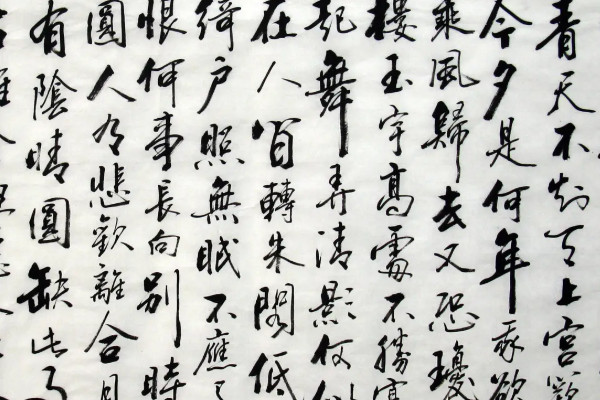 青天不知天上宮闕
今夕是何年我欲
乘風歸去又恐瓊
樓玉宇高處不勝寒
起舞弄清影何似
在人間轉朱閣低
綺戶照無眠不應有
恨何事長向別時
圓人有悲歡離合月
有陰晴圓缺此事